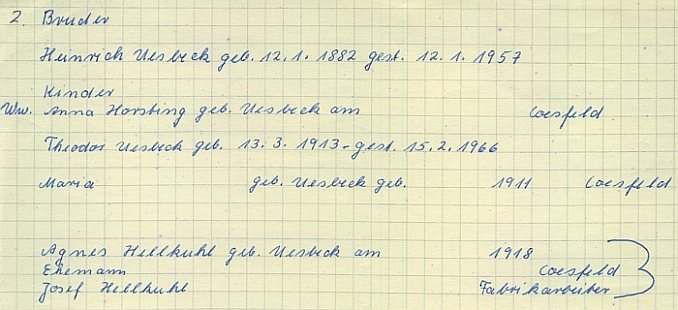 2. Bruder
Heinrich Uesbeck geb. 12.1.1882 gest. 12.1.1957
Kinder
Ww. Anna Horsting geb. Uesbeck am Coesfeld
Theodor Uesbeck geb. 13.3.1913 - gest. 15.2.1966
Maria geb. Uesbeck geb. 1911 Coesfeld
Agnes Hellkuhl geb. Uesbeck am 1918
Ehemann Coesfeld
Josef Hellkuhl Fabrikarbeiter